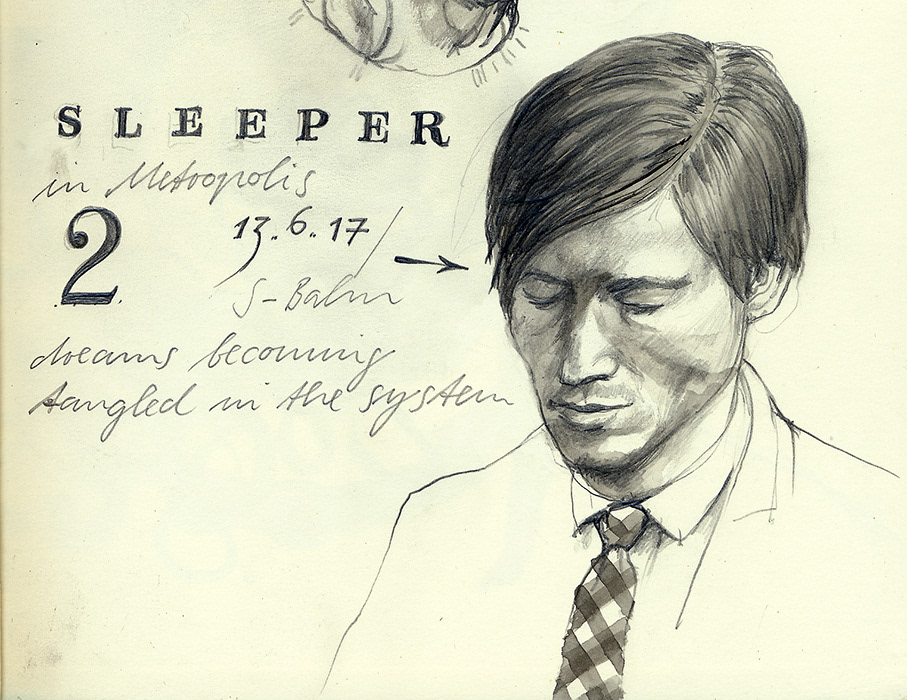 SLEEPER
in Metropolis
2
13.6.17/
S-Bahn
dreams becoming
tangled in the system